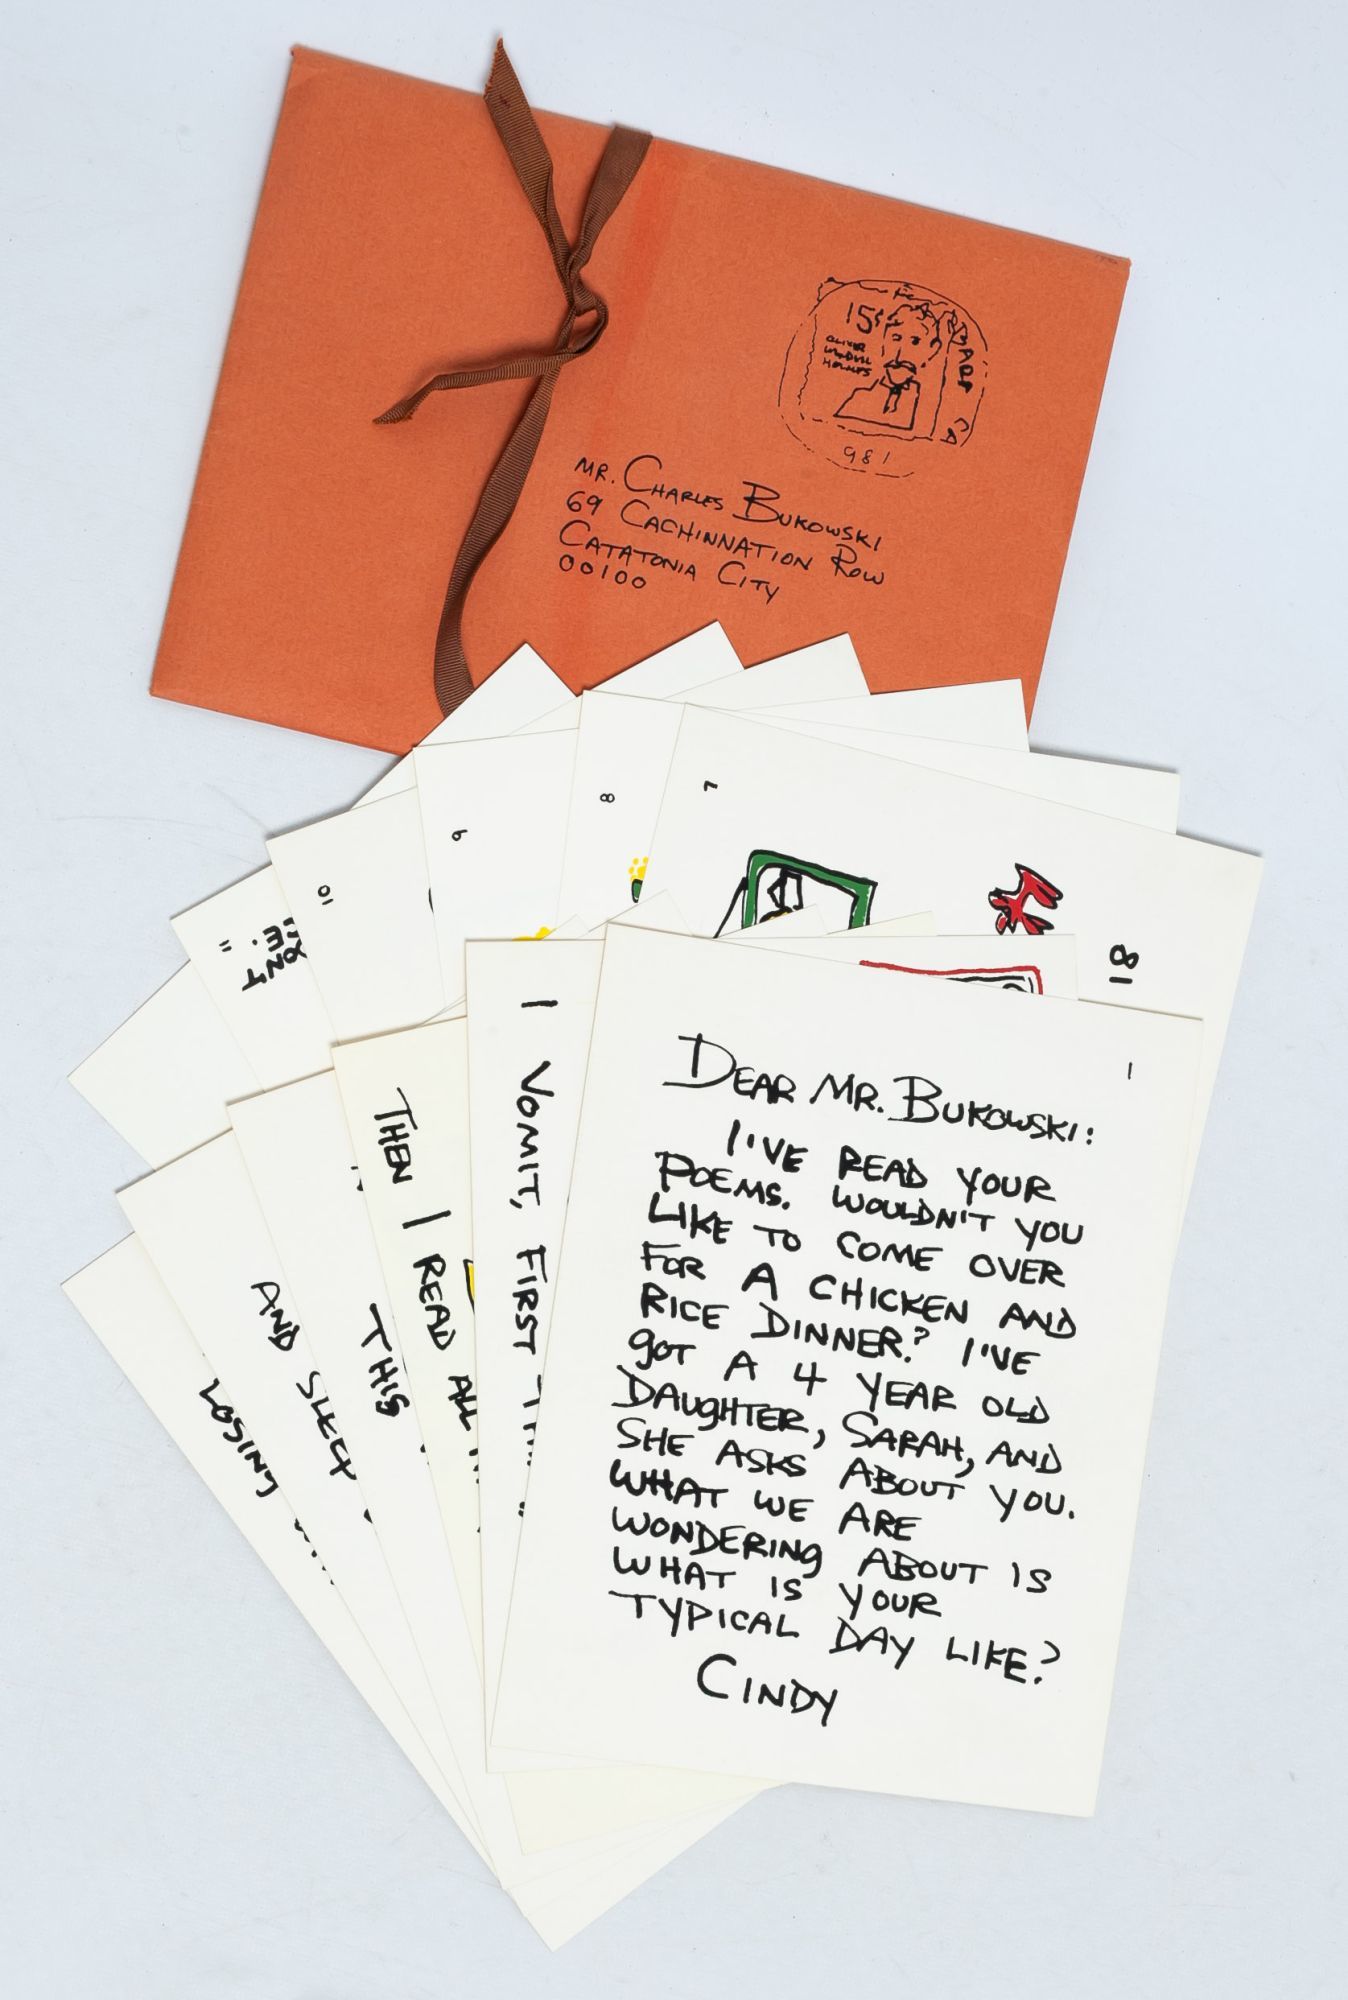 15¢
OLIVER
WENDELL
HOLMES
981
MR. CHARLES BUKOWSKI
69 CACHINNATION ROW
CATATONIA CITY
00100
7
8
9
10
11
ME.
18
1
DEAR MR. BUKOWSKI:
I'VE READ YOUR
POEMS. WOULDN'T YOU
LIKE TO COME OVER
FOR A CHICKEN AND
RICE DINNER? I'VE
GOT A 4 YEAR OLD
DAUGHTER, SARAH, AND
SHE ASKS ABOUT YOU.
WHAT WE ARE
WONDERING ABOUT IS
WHAT IS YOUR
TYPICAL DAY LIKE?
CINDY
I VOMIT, FIRST
THEN I READ ALL
THIS
AND SLEEP
LOSING